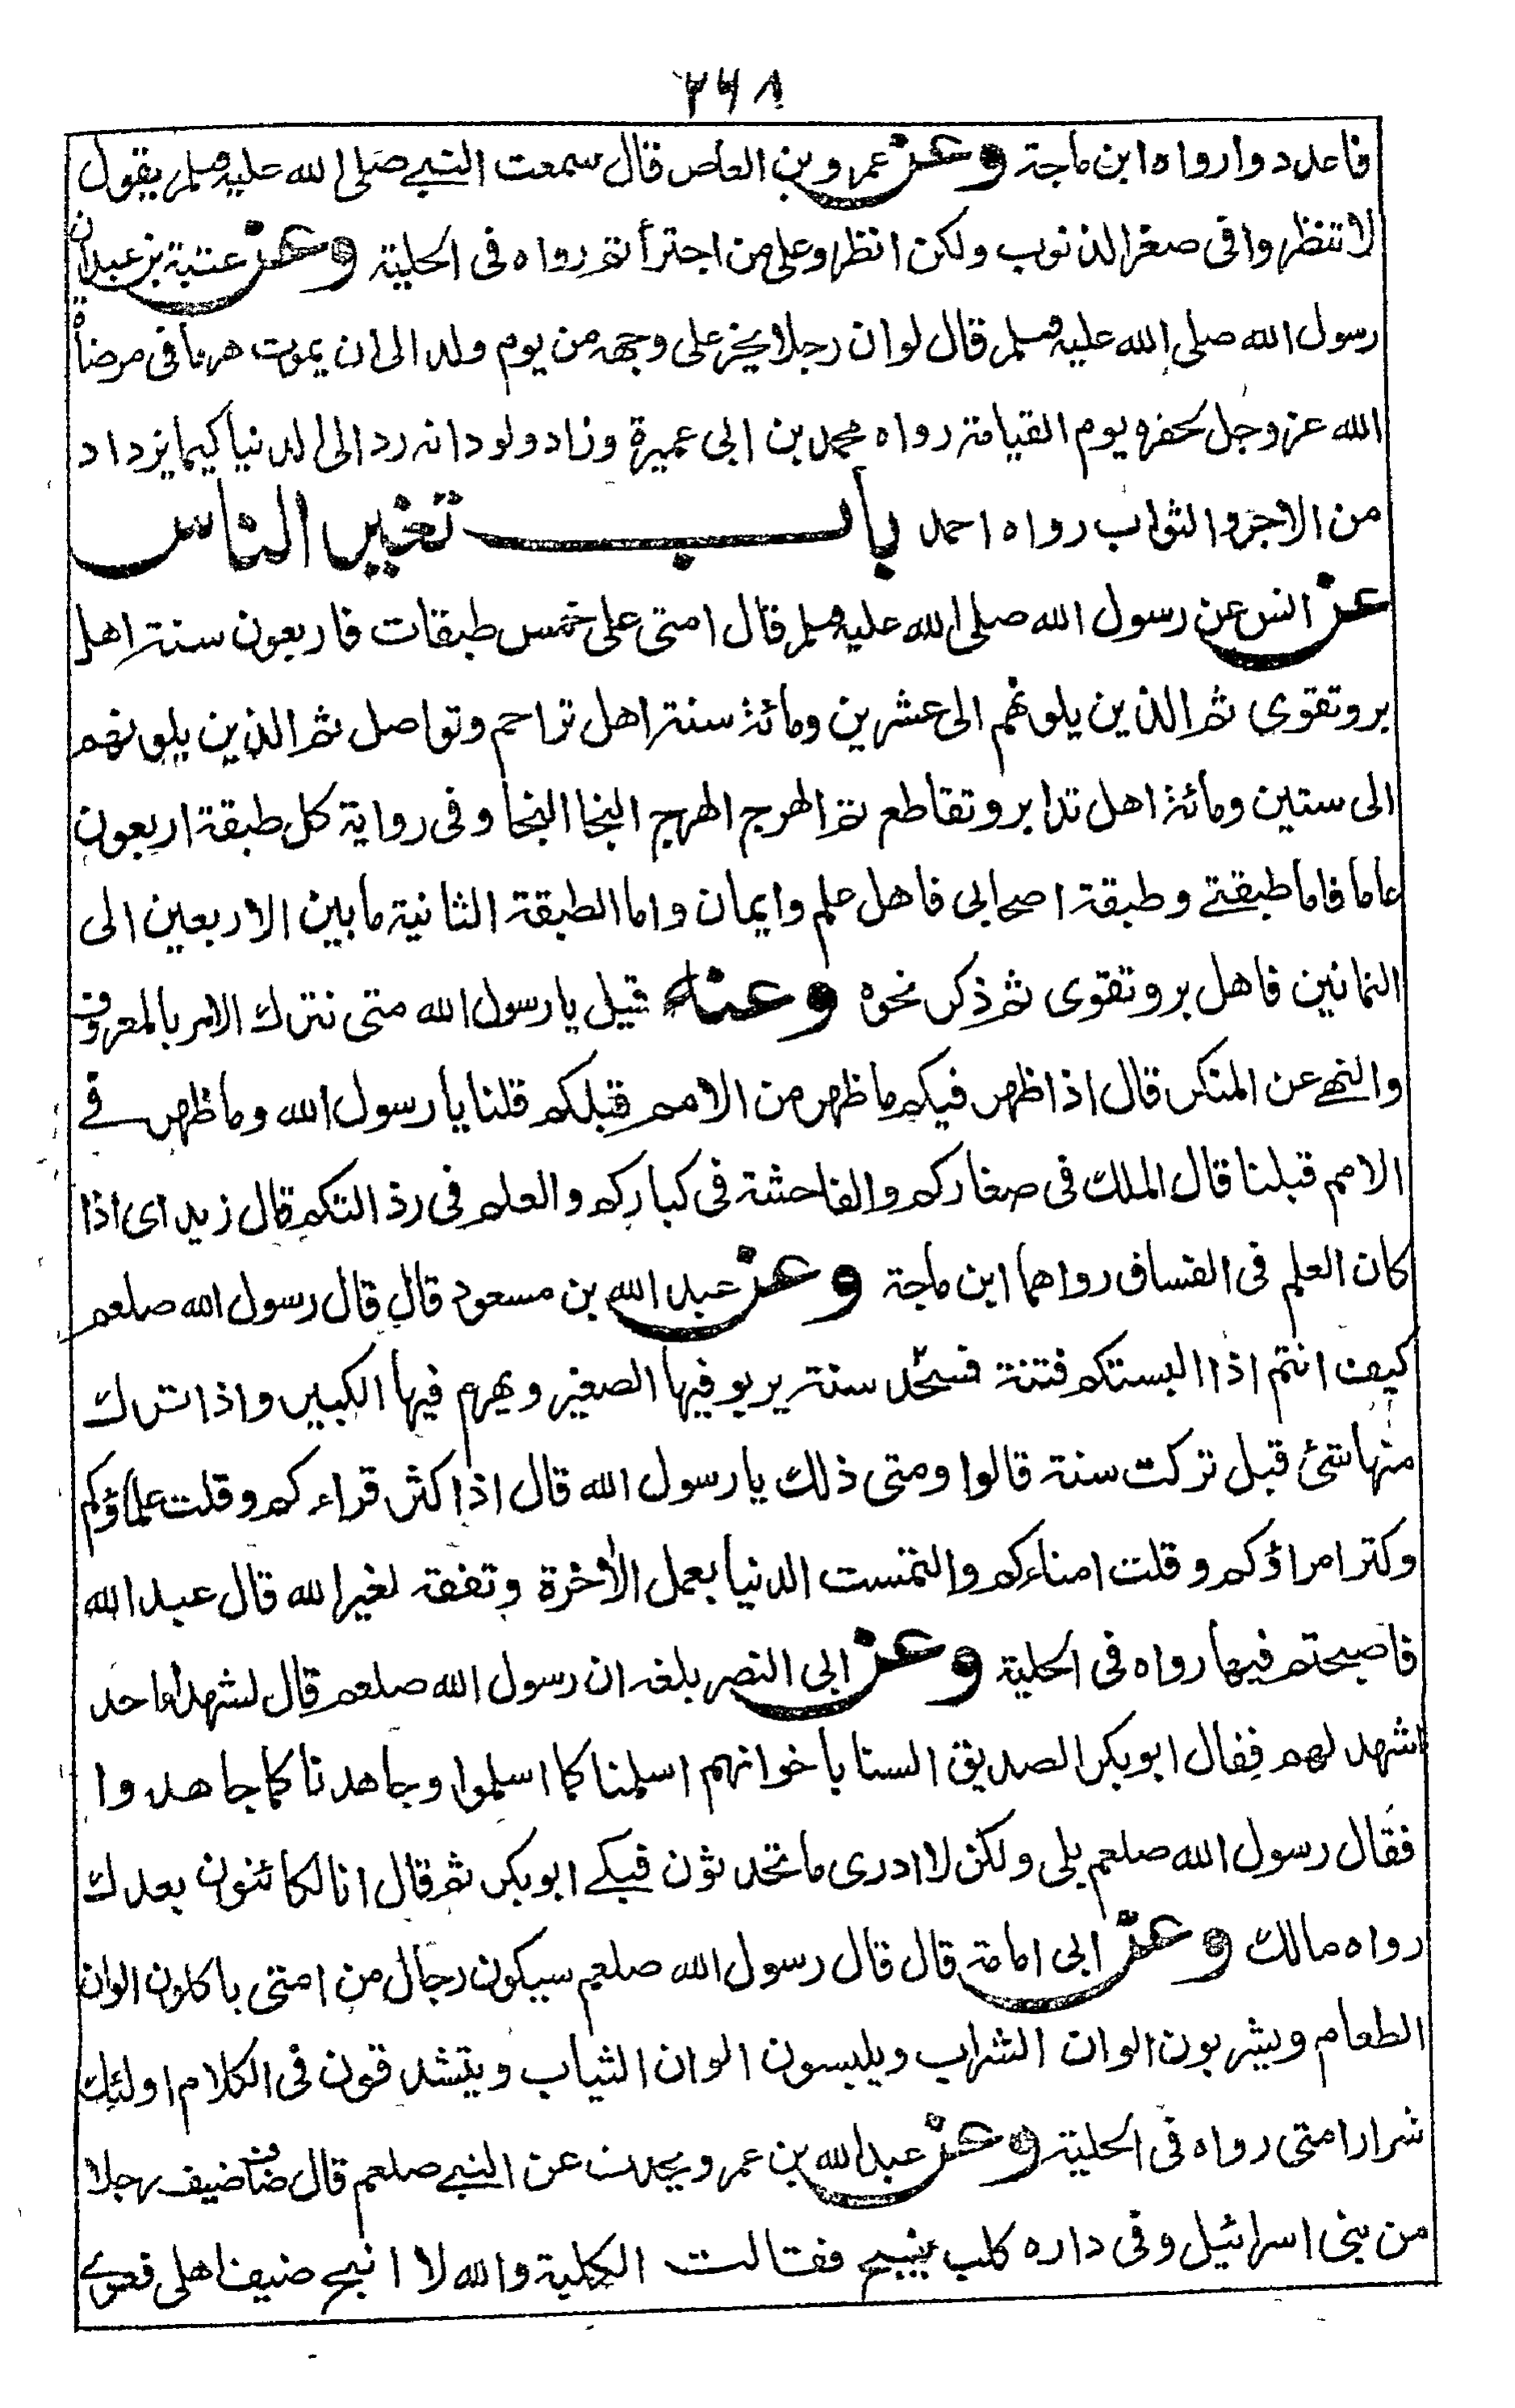 ٢٦٨
فاعدد وارواه ابن ماجة وعن عمرو بن العاص قال سمعت النبي صلى الله عليه وسلم يقول
لا تنظروا فى صغر الذنوب ولكن انظروا على من اجترأتم رواه فى الحلية وعن عتبة بن عبد ان
رسول الله صلى الله عليه وسلم قال لو ان رجلا يخر على وجهه من يوم ولد الى ان يموت هرما فى مرضاة
الله عز وجل لحقره يوم القيامة رواه محمد بن ابى عميرة وزاد ولود انه رد الى الدنيا كيما يزداد
من الاجر والثواب رواه احمد باب تغير الناس
عن انس عن رسول الله صلى الله عليه وسلم قال امتى على خمس طبقات فاربعون سنة اهل
بر وتقوى ثم الذين يلونهم الى عشرين ومائة سنة اهل تراحم وتواصل ثم الذين يلونهم
الى ستين ومائة اهل تدابر وتقاطع ثم الهرج الهرج النجا النجا وفى رواية كل طبقة اربعون
عاما فاما طبقتي وطبقة اصحابى فاهل علم وايمان واما الطبقة الثانية ما بين الاربعين الى
الثمانين فاهل بر وتقوى ثم ذكر نحوه وعنه قيل يا رسول الله متى نترك الامر بالمعروف
والنهي عن المنكر قال اذا ظهر فيكم ما ظهر من الامم قبلكم قلنا يا رسول الله وما ظهر في
الامم قبلنا قال الملك فى صغاركم والفاحشة فى كباركم والعلم فى رذالتكم قال زيد اى اذا
كان العلم فى الفساق رواهما ابن ماجة وعن عبد الله بن مسعود قال قال رسول الله صلعم
كيف انتم اذا البستكم فتنة فتتخذ سنة يربو فيها الصغير ويهرم فيها الكبير واذا ترك
منها شئ قبل تركت سنة قالوا ومتى ذلك يا رسول الله قال اذا كثر قراءكم وقلت علماؤكم
وكثر امراؤكم وقلت امناءكم والتمست الدنيا بعمل الأخرة وتفقه لغير الله قال عبد الله
فاصبحتم فيها رواه فى الحلية وعن ابى النصر بلغه ان رسول الله صلعم قال لشهداء احد
اشهد لهم فقال ابو بكر الصديق السنا باخوانهم اسلمنا كما اسلموا وجاهدنا كما جاهدوا
فقال رسول الله صلعم بلى ولكن لا ادرى ما تحدثون فبكي ابو بكر ثم قال انا لكائنون بعدك
رواه مالك وعن ابى امامة قال قال رسول الله صلعم سيكون رجال من امتى ياكلون الوان
الطعام ويشربون الوان الشراب ويلبسون الوان الثياب ويتشدقون فى الكلام اولئك
شرار امتى رواه فى الحلية وعن عبد الله بن عمرو يحدث عن النبي صلعم قال ضاف ضيف رجلا
من بنى اسرائيل وفى داره كلب ينبح فقالت الكلبة والله لا انبح ضيف اهلى فعوي